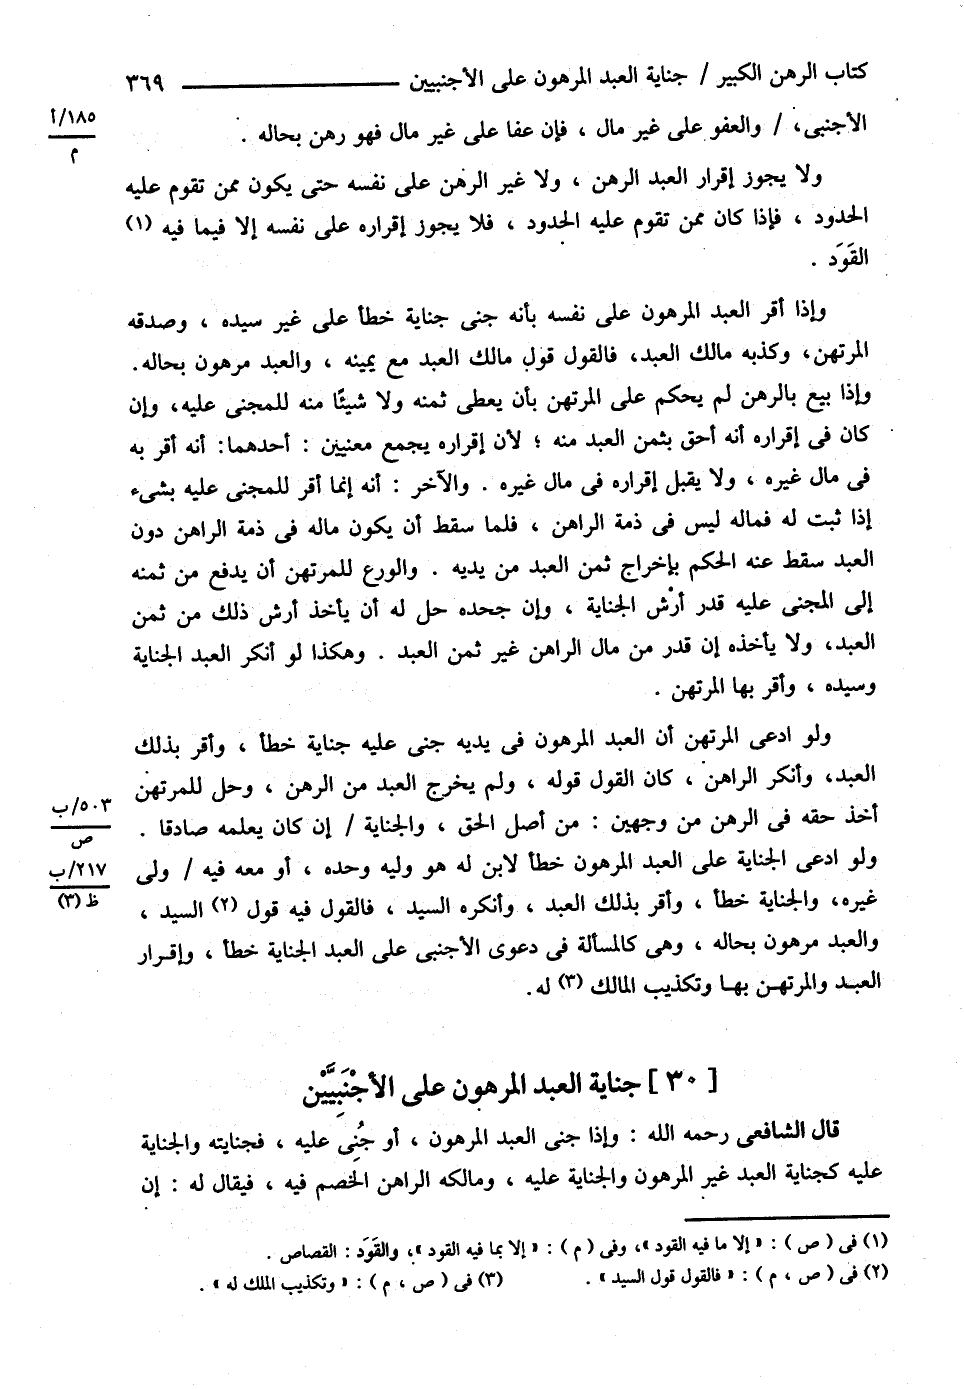 كتاب الرهن الكبير / جناية العبد المرهون على الأجنبيين ـــــــــــــــــــ ٣٦٩
الأجنبى، / والعفو على غير مال ، فإن عفا على غير مال فهو رهن بحاله .
١٨٥/أ
م
ولا يجوز إقرار العبد الرهن ، ولا غير الرهن على نفسه حتى يكون ممن تقوم عليه
الحدود ، فإذا كان ممن تقوم عليه الحدود ، فلا يجوز إقراره على نفسه إلا فيما فيه (١)
القَوَد .
وإذا أقر العبد المرهون على نفسه بأنه جنى جناية خطأ على غير سيده ، وصدقه
المرتهن، وكذبه مالك العبد، فالقول قول مالك العبد مع يمينه ، والعبد مرهون بحاله.
وإذا بيع بالرهن لم يحكم على المرتهن بأن يعطى ثمنه ولا شيئًا منه للمجنى عليه، وإن
كان فى إقراره أنه أحق بثمن العبد منه ؛ لأن إقراره يجمع معنيين : أحدهما: أنه أقر به
فى مال غيره ، ولا يقبل إقراره فى مال غيره . والآخر : أنه إنما أقر للمجنى عليه بشىء
إذا ثبت له فماله ليس فى ذمة الراهن ، فلما سقط أن يكون ماله فى ذمة الراهن دون
العبد سقط عنه الحكم بإخراج ثمن العبد من يديه . والورع للمرتهن أن يدفع من ثمنه
إلى المجنى عليه قدر أرْش الجناية ، وإن جحده حل له أن يأخذ أرش ذلك من ثمن
العبد، ولا يأخذه إن قدر من مال الراهن غير ثمن العبد . وهكذا لو أنكر العبد الجناية
وسيده ، وأقر بها المرتهن .
ولو ادعى المرتهن أن العبد المرهون فى يديه جنى عليه جناية خطأ ، وأقر بذلك
العبد، وأنكر الراهن ، كان القول قوله ، ولم يخرج العبد من الرهن ، وحل للمرتهن
أخذ حقه فى الرهن من وجهين : من أصل الحق ، والجناية / إن كان يعلمه صادقا .
٥٠٣/ب
ص
ولو ادعى الجناية على العبد المرهون خطأ لابن له هو وليه وحده ، أو معه فيه / ولى
٢١٧/ب
ظ (٣)
غيره، والجناية خطأ ، وأقر بذلك العبد ، وأنكره السيد ، فالقول فيه قول (٢) السيد ،
والعبد مرهون بحاله ، وهى كالمسألة فى دعوى الأجنبى على العبد الجناية خطأ ، وإقـرار
العبـد والمرتهـن بهـا وتكذيب المالك (٣) له.
[ ٣٠ ] جناية العبد المرهون على الأجْنَبِيَّيْن
قال الشافعى رحمه الله : وإذا جنى العبد المرهون ، أو جُنِى عليه ، فجنايته والجناية
عليه كجناية العبد غير المرهون والجناية عليه ، ومالكه الراهن الخصم فيه ، فيقال له : إن
(١) فى ( ص ) : « إلا ما فيه القود »، وفى ( م ) : « إلا بما فيه القود »، والقَوَد : القصاص .
(٢) فى ( ص ، م ) : « فالقول قول السيد » . (٣) فى ( ص ، م ) : « وتكذيب الملك له » .